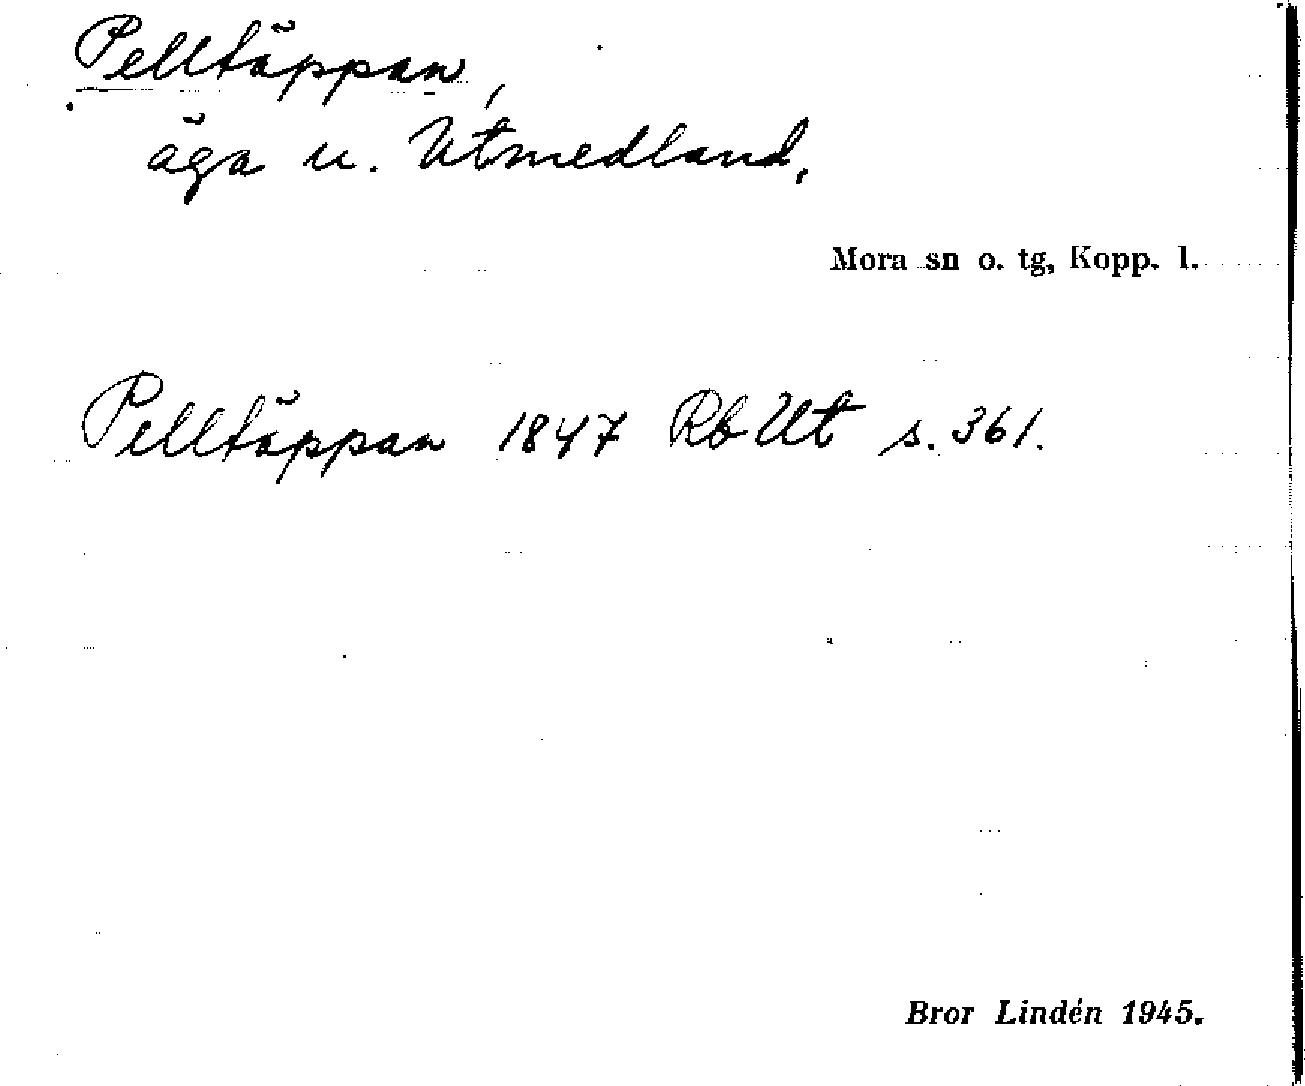 Pelltäppan,
äga u. Utmedland.
Mora sn o. tg, Kopp. l.
Pelltäppan 1847 Rb Ut s. 361.
Bror Lindén 1945.